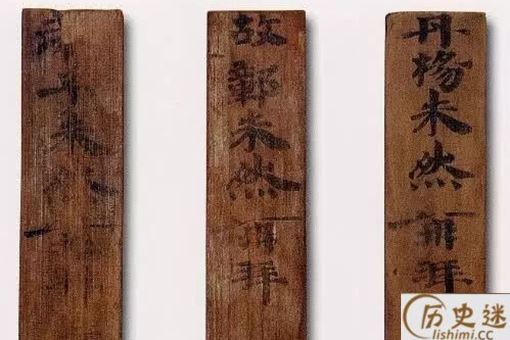 丹楊朱然再拜
故鄣朱然再拜
弟子朱然
历史迷
lishimi.cc